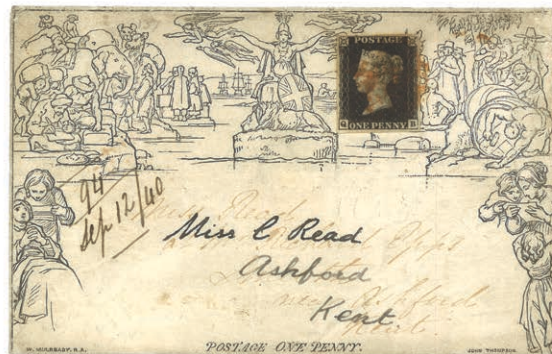 POSTAGE
Q B
ONE PENNY
94
Sep 12/40
Miss C Read
Ashford
Kent
Ashford
W. MULREADY, R.A.
POSTAGE ONE PENNY.
JOHN THOMPSON